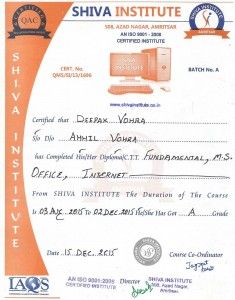 SHIVA INSTITUTE
508, AZAD NAGAR, AMRITSAR
AN ISO 9001 : 2008
CERTIFIED INSTITUTE
QAC
SHIVA INSTITUTE
CERT. No.
QMS/SI/13/1606
BATCH No. A
www.shivainstitute.co.in
SHIVA INSTITUTE
Certified that DEEPAK VOHRA
S/o D/o ANHIL VOHRA
has Completed His/Her Diploma/C.T.T. FUNDAMENTAL, M.S.
OFFICE, INTERNET
From SHIVA INSTITUTE The Duration of The Course
is 03 Aug. 2015 to 02 DEC. 2015 He/She Has Got A Grade
Date 15 DEC. 2015
Course Co-Ordinator
IAQS
AN ISO 9001:2008
CERTIFIED INSTITUTE
Director
SHIVA INSTITUTE
508, Azad Nagar,
Amritsar.